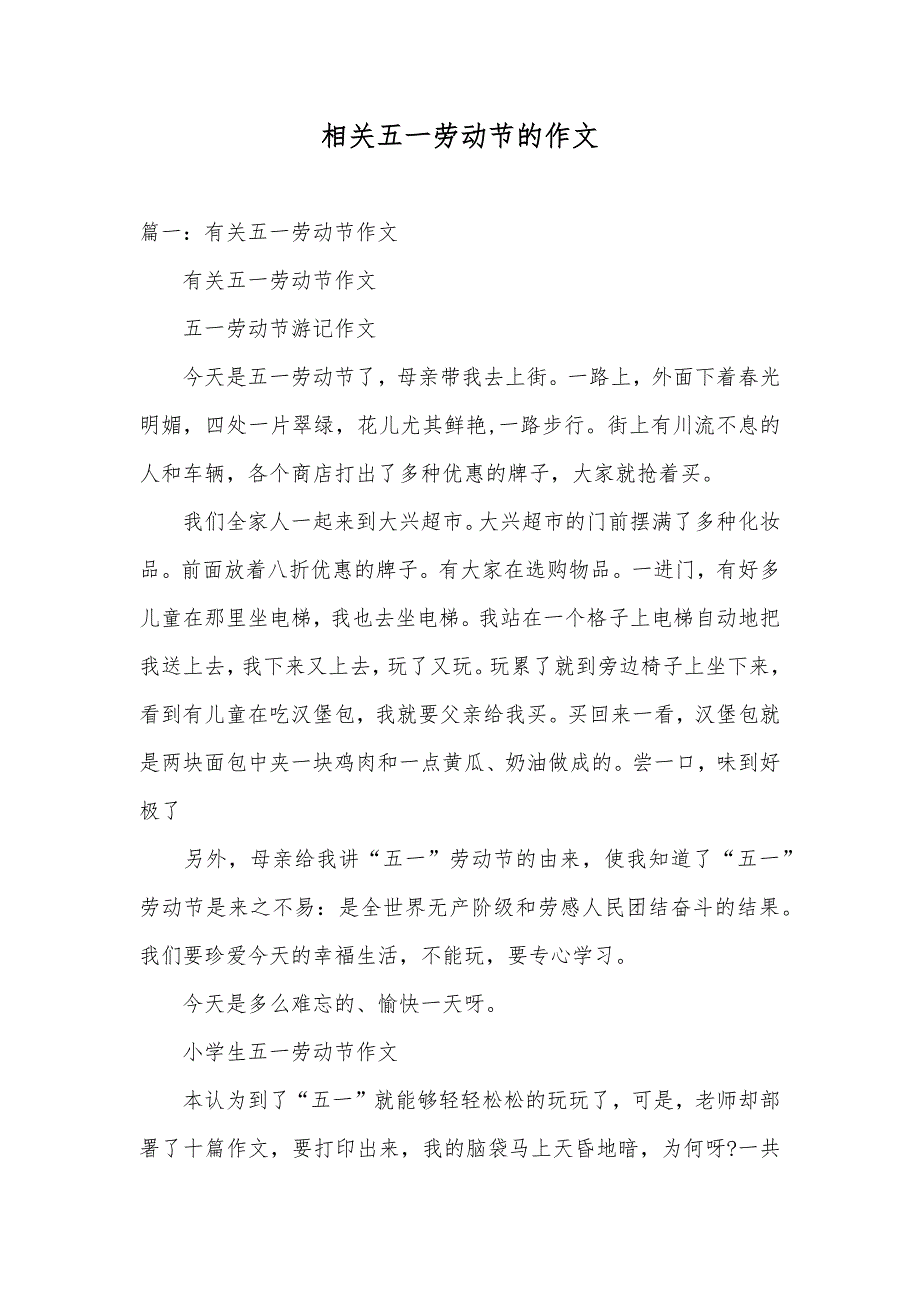 相关五一劳动节的作文
篇一：有关五一劳动节作文
有关五一劳动节作文
五一劳动节游记作文
今天是五一劳动节了，母亲带我去上街。一路上，外面下着春光
明媚，四处一片翠绿，花儿尤其鲜艳,一路步行。街上有川流不息的
人和车辆，各个商店打出了多种优惠的牌子，大家就抢着买。
我们全家人一起来到大兴超市。大兴超市的门前摆满了多种化妆
品。前面放着八折优惠的牌子。有大家在选购物品。一进门，有好多
儿童在那里坐电梯，我也去坐电梯。我站在一个格子上电梯自动地把
我送上去，我下来又上去，玩了又玩。玩累了就到旁边椅子上坐下来，
看到有儿童在吃汉堡包，我就要父亲给我买。买回来一看，汉堡包就
是两块面包中夹一块鸡肉和一点黄瓜、奶油做成的。尝一口，味到好
极了
另外，母亲给我讲“五一”劳动节的由来，使我知道了“五一”
劳动节是来之不易：是全世界无产阶级和劳感人民团结奋斗的结果。
我们要珍爱今天的幸福生活，不能玩，要专心学习。
今天是多么难忘的、愉快一天呀。
小学生五一劳动节作文
本认为到了“五一”就能够轻轻松松的玩玩了，可是，老师却部
署了十篇作文，要打印出来，我的脑袋马上天昏地暗，为何呀?一共